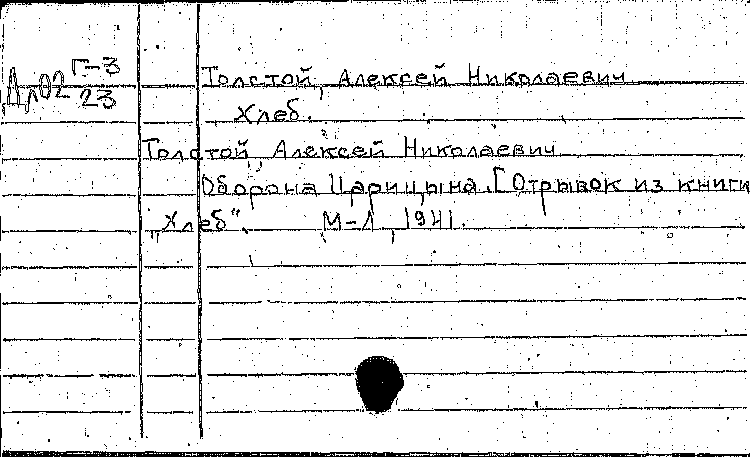 Дл02 Г-3
23
Толстой, Алексей Николаевич
Хлеб.
Толстой, Алексей Николаевич
Оборона Царицына. [Отрывок из книги
„Хлеб". М-Л, 1941.